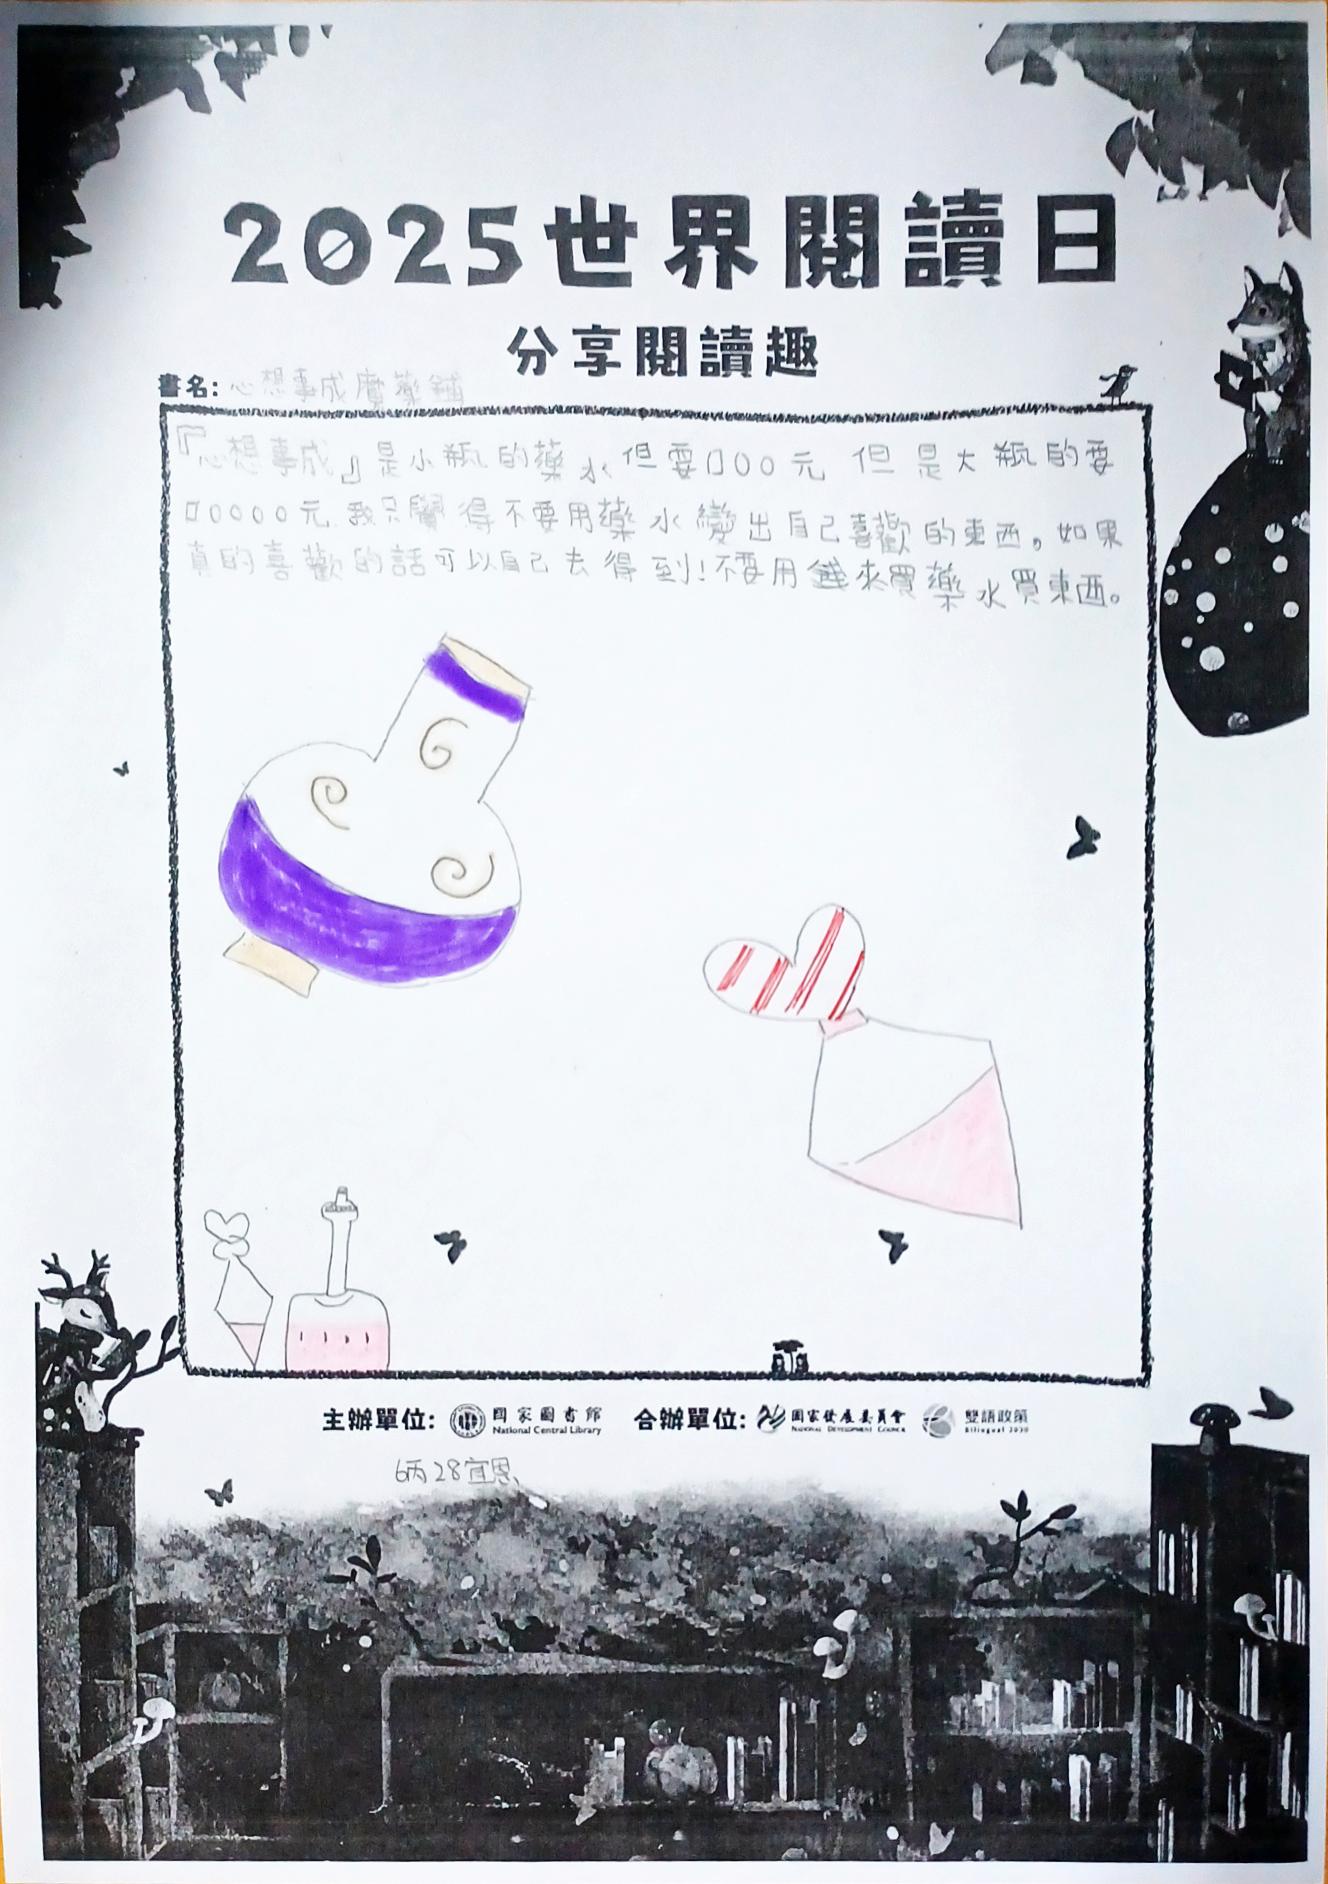 2025世界閱讀日
分享閱讀趣
書名：心想事成魔藥鋪
『心想事成』是小瓶的藥水但要100元 但是大瓶的要
10000元.我只覺得不要用藥水變出自己喜歡的東西。如果
真的喜歡的話可以自己去得到!不要用錢來買藥水買東西。
主辦單位: 國家圖書館 National Central Library 合辦單位: 國家發展委員會 NATIONAL DEVELOPMENT COUNCIL 雙語政策 Bilingual 2030
6丙28宜恩